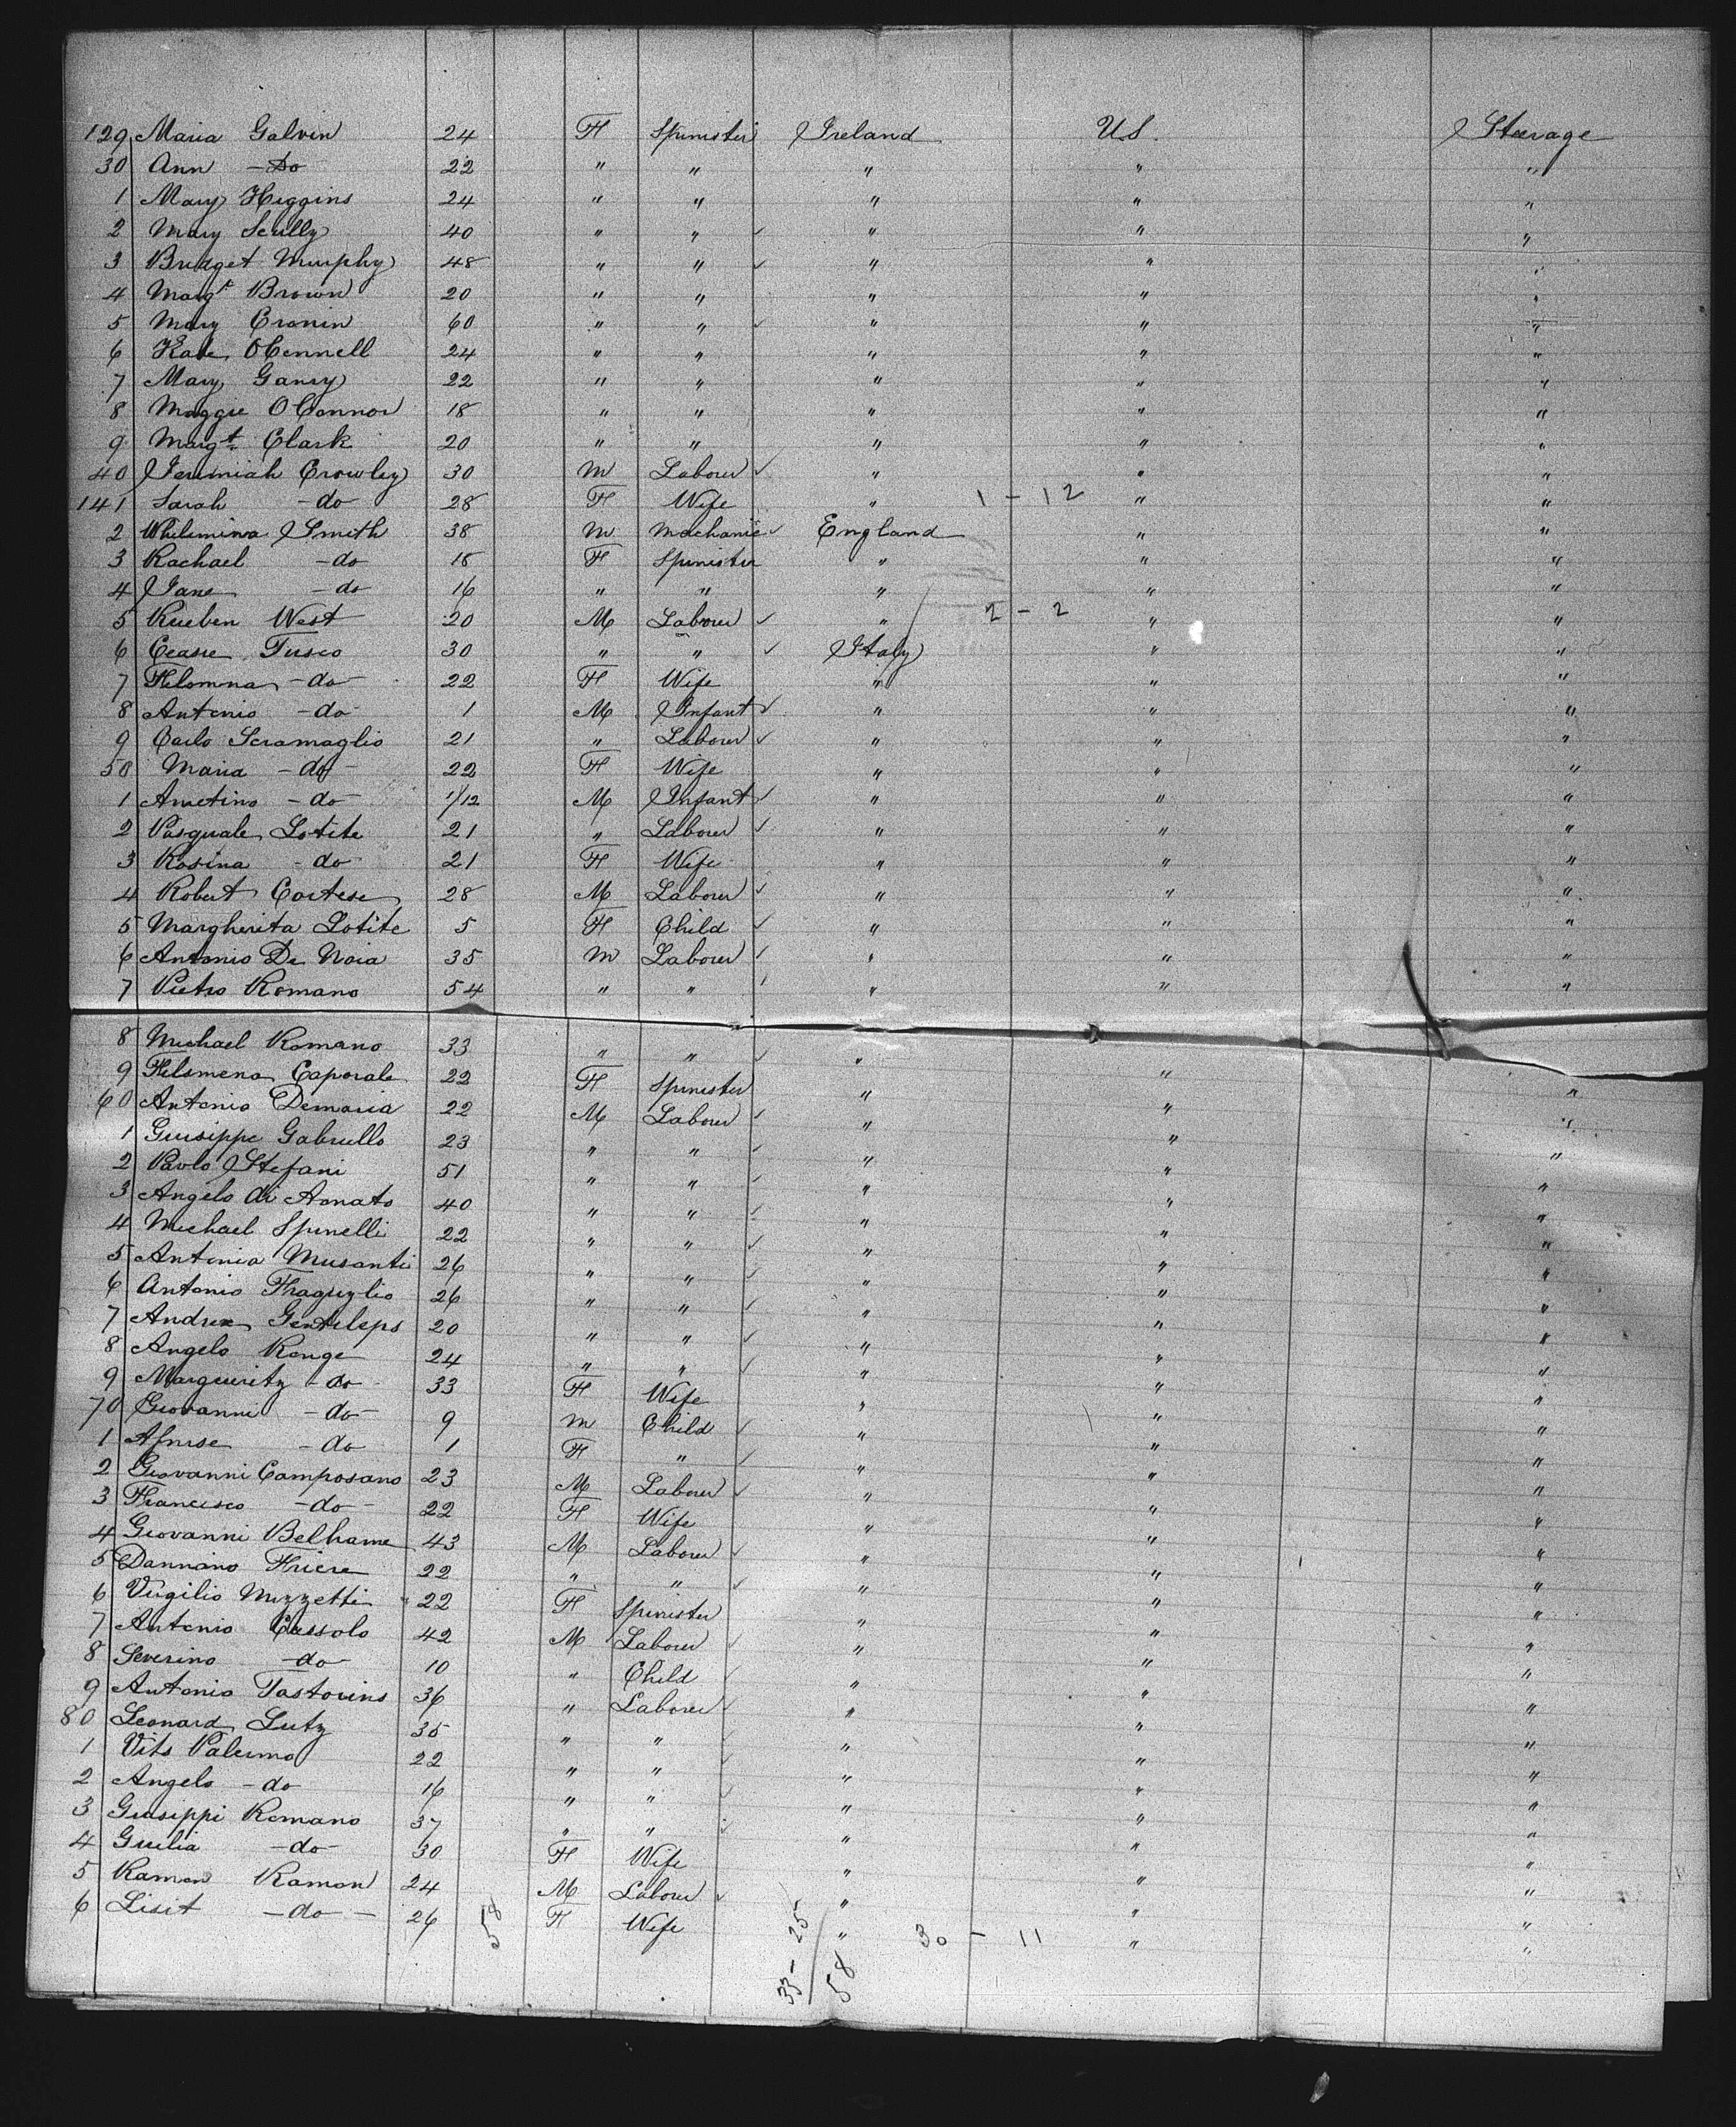 129 Maria Galvin 24 F Spinister Ireland U.S. Steerage
30 Ann - Do 22 " " " " "
1 Mary Higgins 24 " " " " "
2 Mary Scully 40 " " ✓ " " "
3 Bridget Murphy 48 " " ✓ " " "
4 Margt Brown 20 " " " " "
5 Mary Cronin 60 " " ✓ " " "
6 Kate OConnell 24 " " " " "
7 Mary Ganey 22 " " " " "
8 Maggie OConnor 18 " " " " "
9 Margt Clark 20 " " " " "
40 Jeremiah Crowley 30 M Labour ✓ " " "
141 Sarah - do 28 F Wife " 1 - 12 " "
2 Whilimina Smith 38 M Mechanic ✓ England " "
3 Rachael - do 18 F Spinister " " "
4 Jane - do 16 " " " " "
5 Rueben West 20 M Labour ✓ " 2 - 2 " "
6 Ceasre Fusco 30 " " ✓ Italy " "
7 Filomna - do - 22 F Wife " " "
8 Antonio - do - 1 M Infant ✓ " " "
9 Carlo Scramaglio 21 " Labour ✓ " " "
50 Maria - do - 22 F Wife " " "
1 - do - 1/12 M Infant ✓ " " "
2 Pasquale Lotite 21 " Labour ✓ " " "
3 Rosina - do - 21 F Wife " " "
4 Robert Cortese 28 M Labour ✓ " " "
5 Margherita Lotite 5 F Child ✓ " " "
6 Antonio De Noia 35 M Labour ✓ " " "
7 Pietro Romano 54 " " ✓ " " "
8 Michael Romano 33 " " ✓ " "
9 Filomena Caporale 22 F Spinister " " "
60 Antonio Demaria 22 M Labour ✓ " " "
1 Guisippe Gabriello 23 " " ✓ " " "
2 Paolo Stefani 51 " " ✓ " " "
3 Angelo di Aonato 40 " " ✓ " " "
4 Michael Spinelli 22 " " ✓ " " "
5 Antonia Musanti 26 " " ✓ " " "
6 Antonio 26 " " ✓ " " "
7 Andrea 20 " " ✓ " " "
8 Angelo Ronge 24 " " ✓ " " "
9 Marguerity - do - 33 F Wife " " "
70 Giovanni - do - 9 M Child ✓ " " "
1 - do 1 F " ✓ " " "
2 Giovanni Camposano 23 M Labour ✓ " " "
3 Francisco - do - 22 F Wife " " "
4 Giovanni Belhame 43 M Labour ✓ " " "
5 Dannano Friere 22 " " ✓ " " "
6 Virgilio Mizzetti 22 F Spinister " " "
7 Antonio Cassolo 42 M Labour ✓ " " "
8 Severino - do - 10 " Child ✓ " " "
9 Antonio Tastovins 36 " Labour ✓ " " "
80 Leonard Lutz 35 " " ✓ " " "
1 Vito Palermo 22 " " ✓ " " "
2 Angelo - do 16 " " ✓ " " "
3 Guisippi Romano 37 " " ✓ " " "
4 Guilia - do - 30 F Wife " " "
5 Ramon Ramon 24 M Labour ✓ " " "
6 Lisit - do - 26 F Wife " 30 - 11 " "
58
33 - 25
58